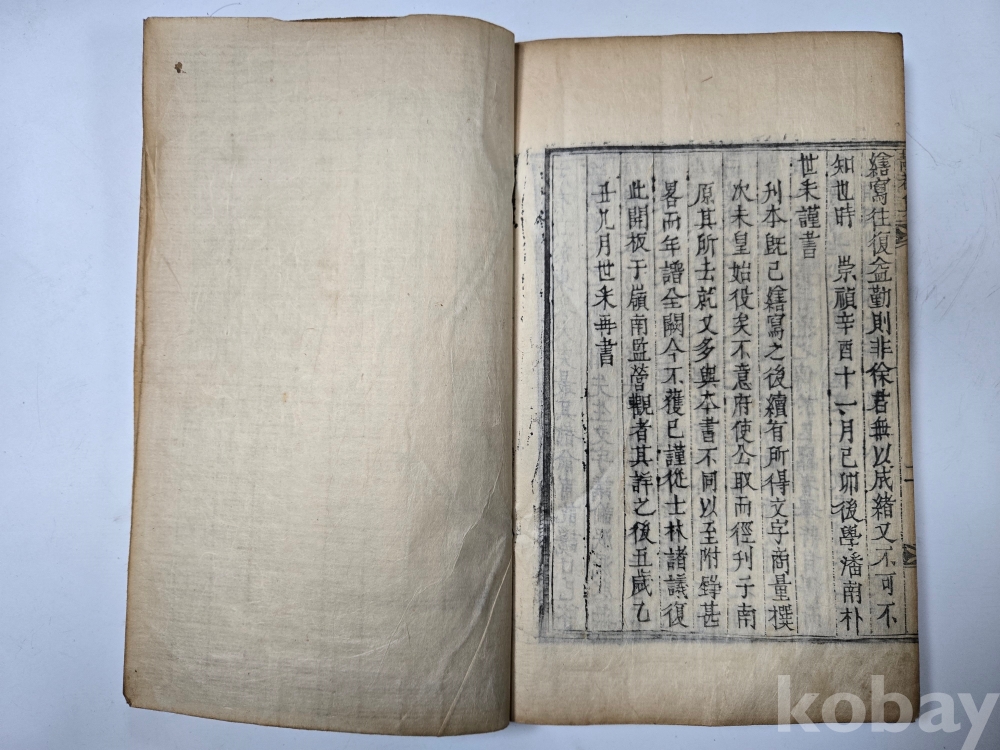 繕寫往復益勤則非徐君無以成緖又不可不
知也時 崇禎辛酉十一月己卯後學潘南朴
世采謹書
刊本旣已繕寫之後續有所得文字商量撰
次未皇始役矣不意府使公取而徑刊于南
原其所去就又多與本書不同以至附錄甚
畧而年譜全闕今不獲已謹從士林諸議復
此開板于嶺南監營觀者其詳之後五歲乙
丑九月世采再書
kobay